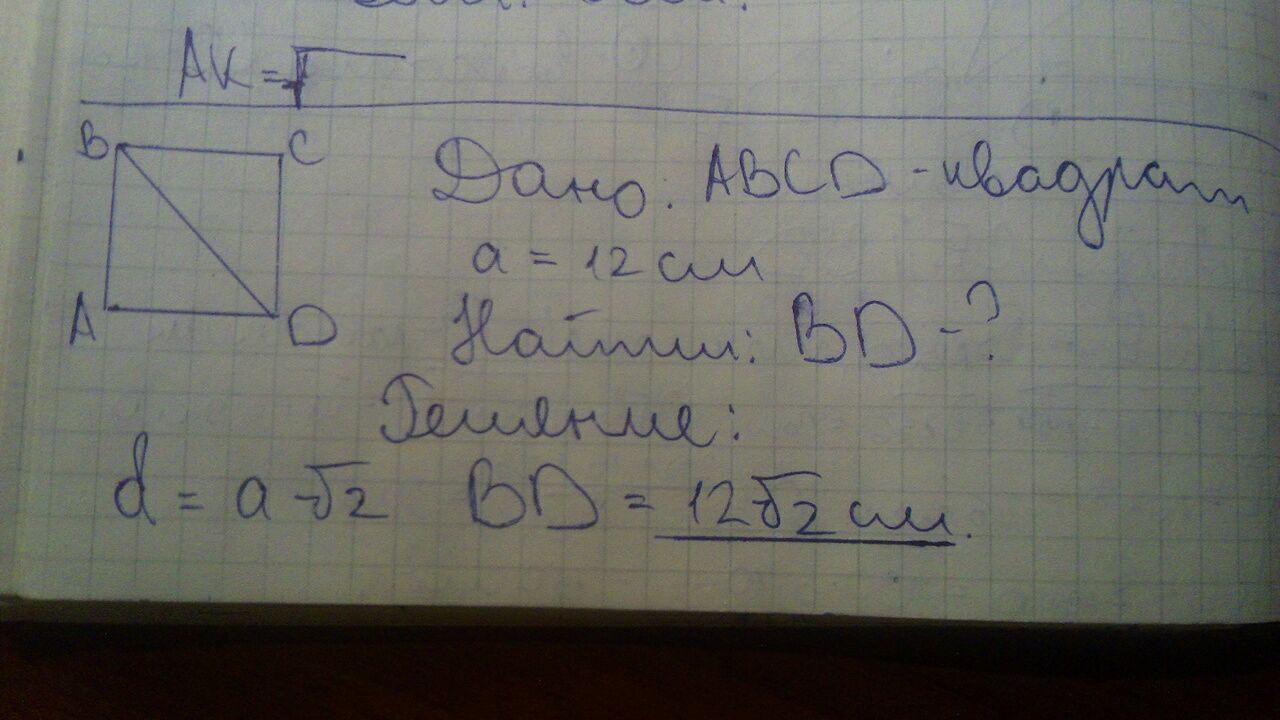 AK = √
B C
Дано: ABCD - квадрат
a = 12 см
A D
Найти: BD - ?
Решение:
d = a √2 BD = 12√2 см.